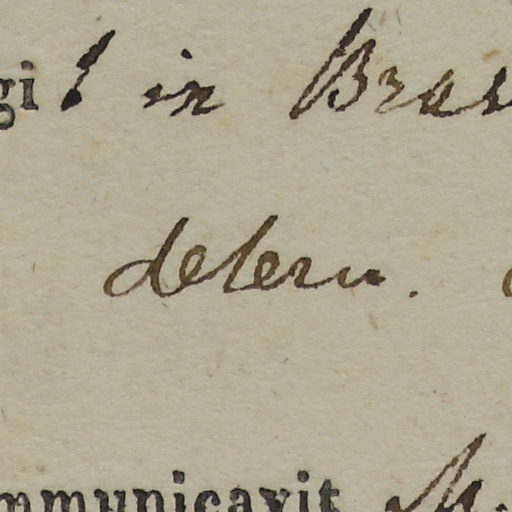 git in Bras
determ.
mmunicavit M.